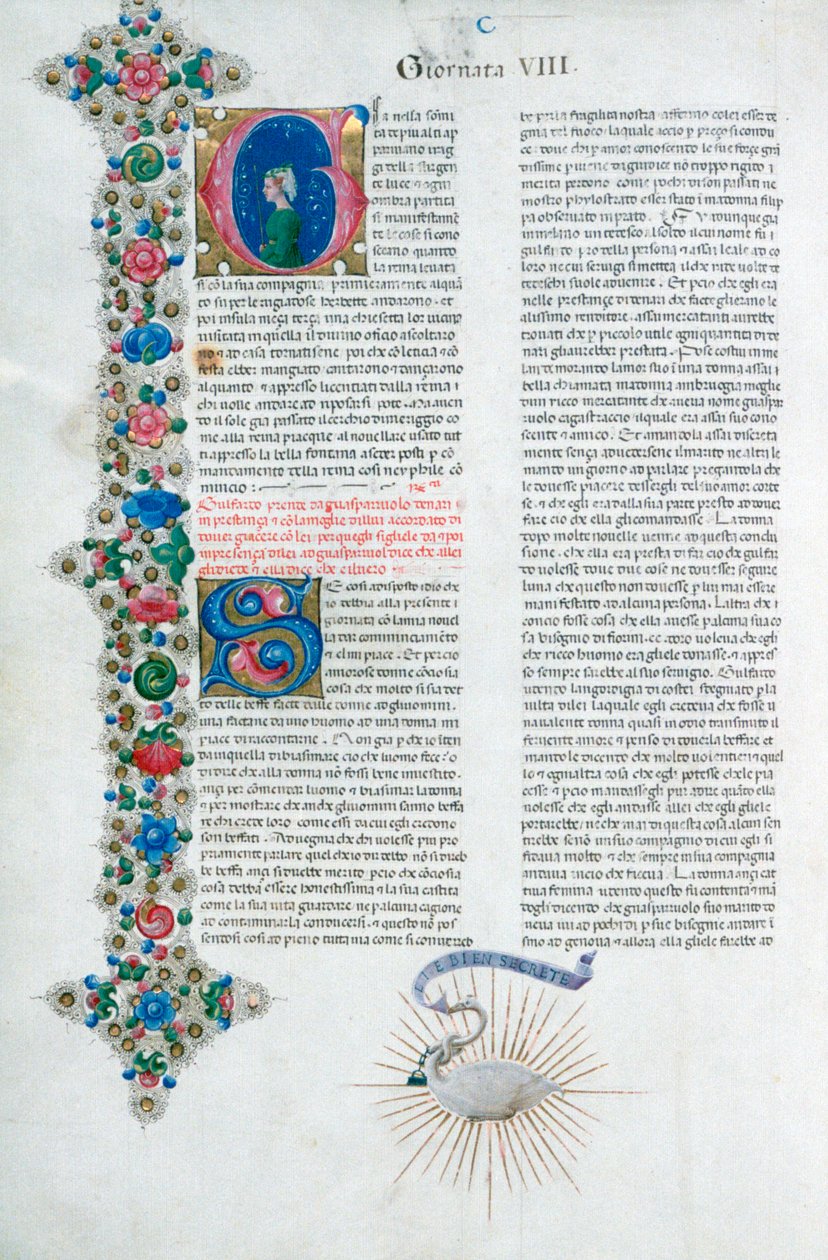 C
Giornata VIII.
Ia nella somi
ta de piu alti ap
pariuano i rag
gi della surgen
te luce et ogni
ombra partita
si manifestamē
te le cose si cono
sceano quando
la reina leuata
si cō la sua compagnia primieramente alquā
to su per le rugiadose herbette andarono. et
poi in su la meça terça una chiesetta lor uicina
uisitata in quella il diuino oficio ascoltaro
no et ad casa tornatisene poi che cō leticia et cō
festa ebber mangiato cantarono et dançarono
alquanto et appresso licentiati dalla reina
chi uolle andare ad riposarsi pote. Ma auen
do il sole gia passato il cerchio di meriggio co
me alla reina piacque al nouellare usato tut
ti appresso la bella fontana ad seder posti per cō
mandamento della reina cosi neyphile cō
mincio:
Gulfardo prende da guasparruolo denari
in prestança et cō la moglie di llui accordato di
douer giacere cō lei per quegli si gliele da et poi
in presença di lei ad guasparruol dice che allei
gli diede et ella dice che è il uero
SE cosi ad disposto idio che
io debbia alla presente
giornata cō la mia nouel
la dar cominciamēto
et el mi piace. Et percio
amorose donne cō cio sia
cosa che molto si sia det
to delle beffe facte dalle donne ad gliuomini.
una factane da uno huomo ad una donna mi
piace di raccontarne. Non gia per che io intē
da in quella di biasimare cio che luomo fece o
di dire che alla donna nō fossi bene inuestito.
ançi per cōmendar luomo et biasimar la donna
et per mostrare che anche gliuomini sanno beffa
re chi crede loro come essi da cui egli credono
son beffati. Aduegna che chi uolesse piu pro
priamente parlare quel che io dir debbo nō si direb
be beffa ançi si direbbe merito. percio che cō cio sia
cosa debba essere honestissima et la sua castita
come la sua uita guardare ne per alcuna cagione
ad contaminarla conducersi. et questo nō pos
sendosi cosi ad pieno tutta uia come si conuerreb
be per la fragilita nostra. affermo colei esser de
gna del fuoco. la quale accio per preço si condu
ce. doue chi per amor conoscendo le sue forçe grā
dissime peruiene da giudice nō troppo rigido
merita perdono. come pochi di son passati ne
mostro phylostrato esser stato in madonna filip
pa obseruato in prato. Fu adunque gia
in melano un tedesco al soldo il cui nome fu
gulfardo pro della persona et assai leale ad co
loro ne cui seruigi si mettea il che rade uolte de
tedeschi suole aduenire. Et percio che egli era
nelle prestançe di denari che facte gli erano le
alissimo renditore. assai mercatanti aurebbe
trouati che per piccolo utile ogni quantita di de
nari gli aurebber prestata. Pose costui in me
lan dimorando lamor suo in una donna assai
bella chiamata madonna ambruogia moglie
dun ricco mercatante che aueua nome guaspar
ruolo cagastraccio il quale era assai suo cono
scente et amico. Et amandola assai discreta
mente sença aduedersene il marito ne altri le
mando un giorno ad parlare pregandola che
le douesse piacere dessergli del suo amor corte
se. et che egli era dalla sua parte presto ad douer
fare cio che ella gli comandasse. La donna
dopo molte nouelle uenne ad questa conclu
sione. che ella era presta di far cio che gulfar
do uolesse doue due cose ne douesser seguire
luna che questo non douesse per lui mai essere
manifestato ad alcuna persona. Laltra che
concio fosse cosa che ella auesse per alcuna sua co
sa bisogno di fiorini. cc. doro uoleua che egli
che ricco huomo era gliele donasse. et appres
so sempre sarebbe al suo seruigio. Gulfardo
udendo langordigia di costei sdegnato per la
uilta di lei la quale egli credeua che fosse u
na ualente donna quasi in odio transmuto il
feruente amore et penso di douerla beffare et
mandole dicendo che molto uolentieri et quel
lo et ognaltra cosa che egli potesse che le pia
cesse et percio mandassegli pur ad dire quādo ella
uolesse che egli andasse allei che egli gliele
porterebbe. ne che mai di questa cosa alcun sen
tirebbe senō un suo compagnio di cui egli si
fidaua molto et che sempre in sua compagnia
andaua in cio che faceua. La donna ançi cat
tiua femina udendo questo fu contenta et mā
dogli dicendo che guasparruolo suo marito do
ueua iui ad pochi di per sue bisogne andare in
sino ad genoua et allora ella gliele farebbe ad
LI E BIEN SECRETE